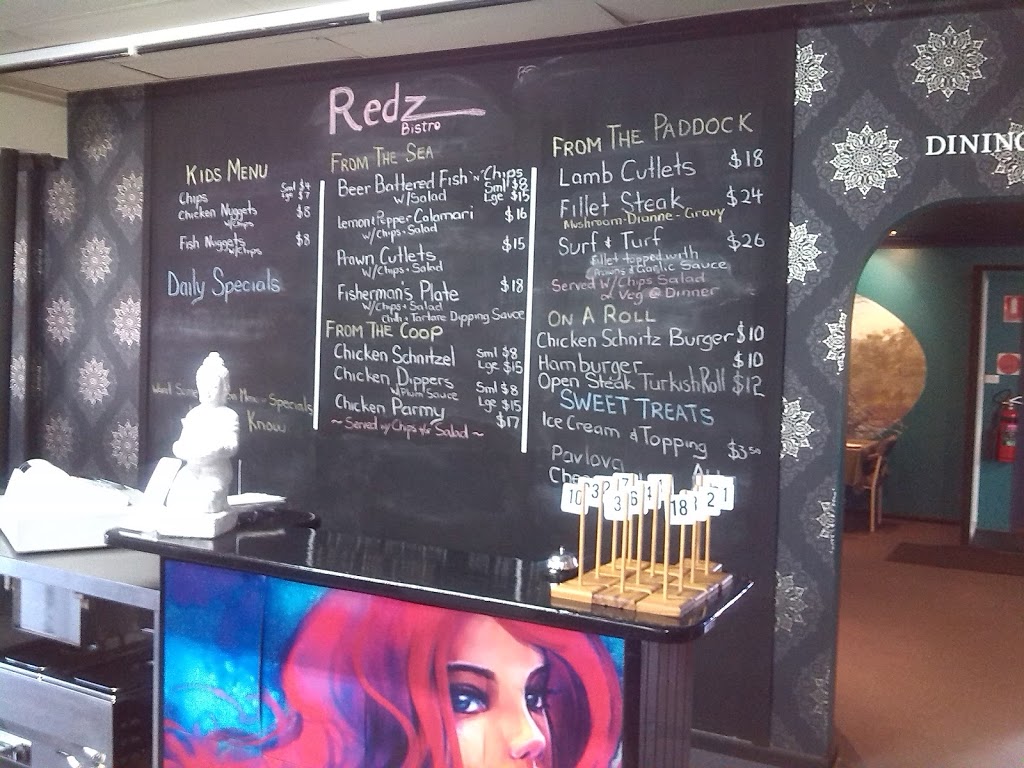 Redz
Bistro
KIDS MENU
Chips Sml $4
Lge $7
Chicken Nuggets $8
w/chips
Fish Nuggets $8
w/chips
Daily Specials
Specials
Know
FROM THE SEA
Beer Battered Fish 'n' Chips
w/Salad Sml $8
Lge $15
Lemon & Pepper Calamari $16
w/chips + Salad
Prawn Cutlets $15
w/Chips + Salad
Fisherman's Plate $18
w/Chips + Salad
Chilli + Tartare Dipping Sauce
FROM THE COOP
Chicken Schnitzel Sml $8
Lge $15
Chicken Dippers Sml $8
w/Plum Sauce Lge $15
Chicken Parmy $17
~ Served w/Chips + Salad ~
FROM THE PADDOCK
Lamb Cutlets $18
Fillet Steak $24
Mushroom - Dianne - Gravy
Surf & Turf $26
fillet topped with
Prawns & Garlic Sauce
Served w/Chips Salad
or Veg @ Dinner
ON A ROLL
Chicken Schnitz Burger $10
Hamburger $10
Open Steak Turkish Roll $12
SWEET TREATS
Ice Cream & Topping $3.50
Pavlova
DINING
10 3 3 6 4 18 2 1